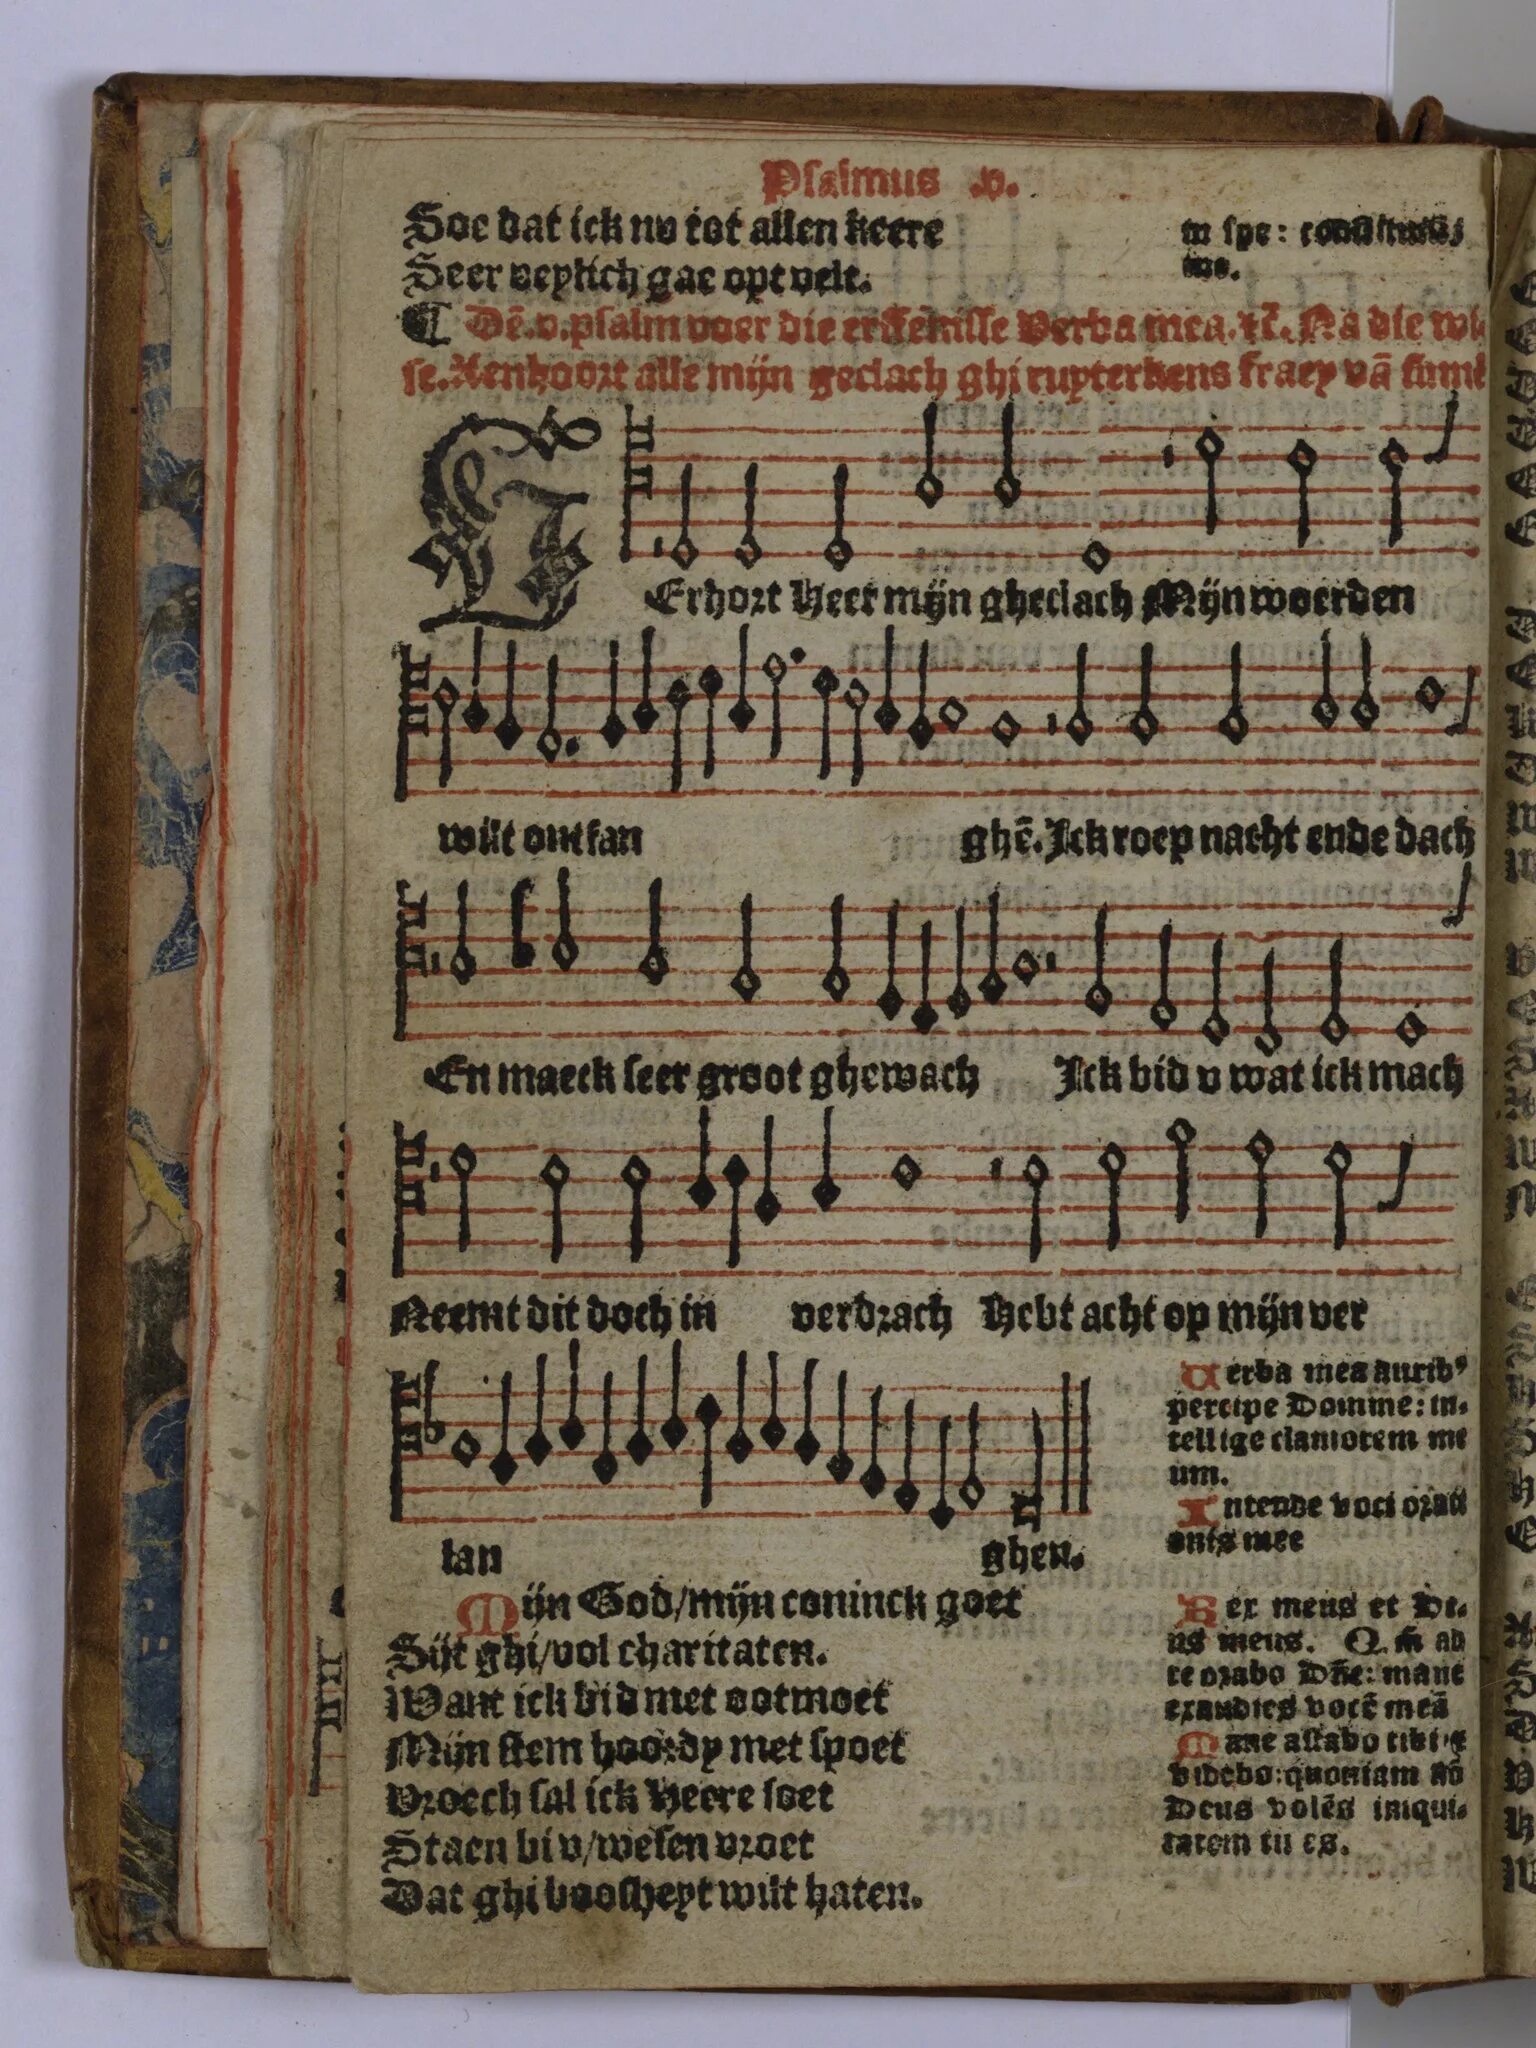 Psalmus .v.
Soe dat ick nv tot allen keere
Seer veylich gae opt velt.
in spe: constituisti
me.
¶ Dē .v. psalm voer die erffenisse Verba mea. ⁊c̄. Na die wi
se. Aenhoort alle mijn geclach ghi ruyterkens fraey vā
Erhort heer mijn gheclach Mijn woerden
wilt ontfan ghē. Ick roep nacht ende dach
En maeck seer groot ghewach Ick bid v wat ick mach
Neemt dit doch in verdrach Hebt acht op mijn ver
lan ghen.
Verba mea aurib⁹
percipe Domine: in-
tellige clamorem me
um.
Intende voci orati
onis mee
Mijn God/mijn coninck goet
Sijt ghi/vol charitaten.
Want ick bid met ootmoet
Mijn stem hoordy met spoet
Vroech sal ick heere soet
Staen bi v/wesen vroet
Dat ghi boosheyt wilt haten.
Rex meus et De-
us meus. Qm̄ ad
te orabo Dn̄e: mane
exaudies vocē meā
Mane astabo tibi ⁊
videbo: quoniam nō
Deus volēs iniqui-
tatem tu es.